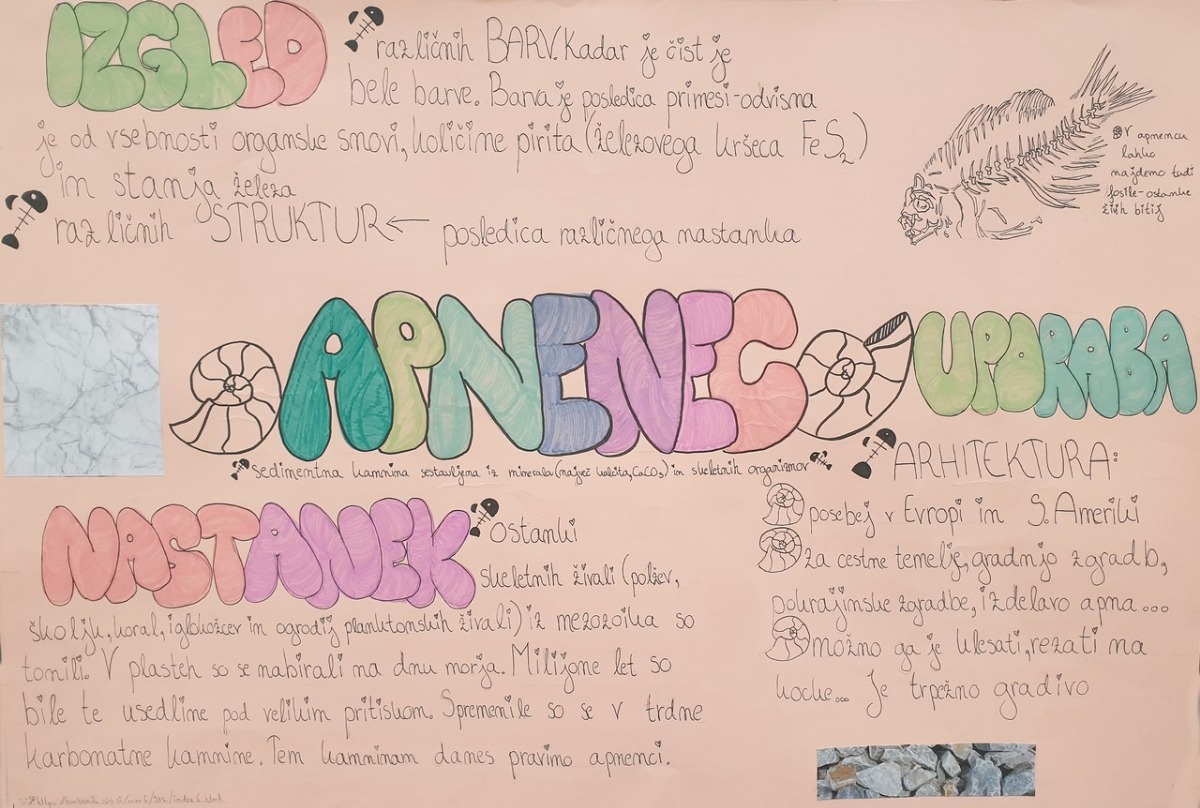 IZGLED
različnih BARV. Kadar je čist je
bele barve. Barva je posledica primesi-odvisna
je od vsebnosti organske snovi, količine pirita (železovega kršeca FeS₂)
in stanja železa
različnih STRUKTUR ← posledica različnega nastanka
V apnencu
lahko
najdemo tudi
fosile-ostanke
živih bitij
APNENEC
sedimentna kamnina sestavljena iz minerala (največ kalcita, CaCO₃) in skeletnih organizmov
UPORABA
ARHITEKTURA:
posebej v Evropi in S. Ameriki
za cestne temelje, gradnjo zgradb,
pokrajinske zgradbe, izdelavo apna...
možno ga je klesati, rezati na
kocke... Je trpežno gradivo
NASTANEK
ostanki
skeletnih živali (polžev,
školjk, koral, iglokožcev in ogrodij planktonskih živali) iz mezozoika so
tonili. V plasteh so se nabirali na dnu morja. Milijone let so
bile te usedline pod velikim pritiskom. Spremenile so se v trdne
karbonatne kamnine. Tem kamninam danes pravimo apnenci.